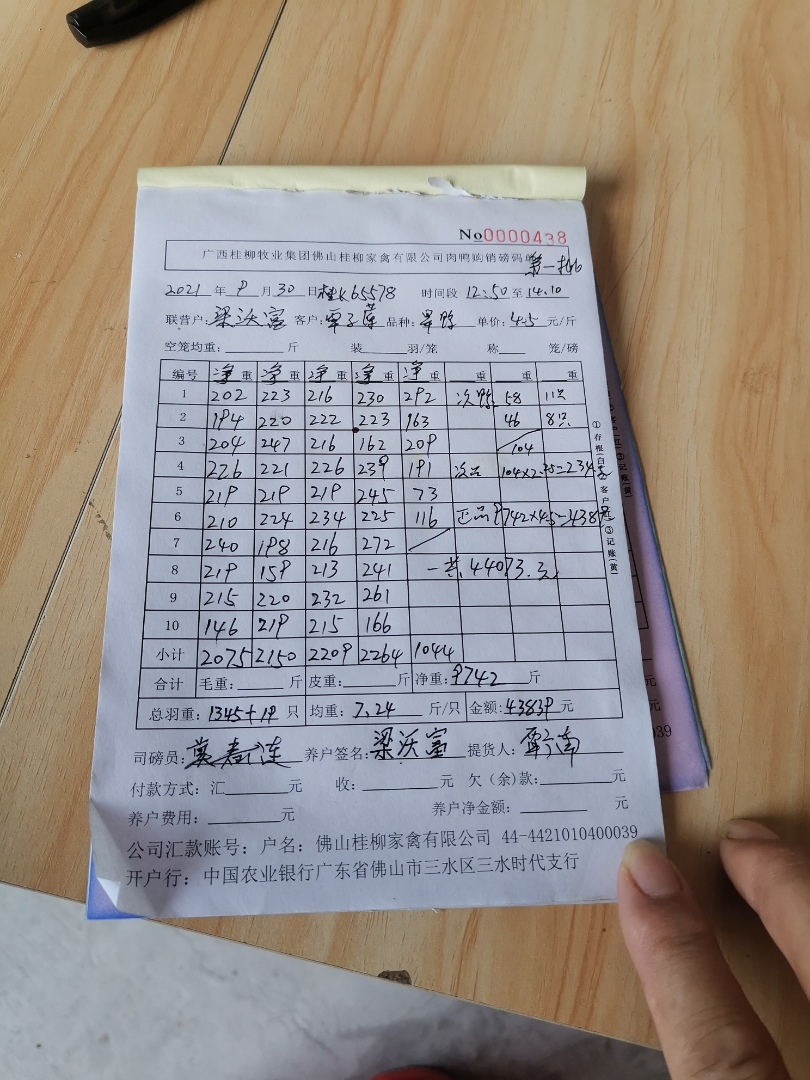 No0000438
广西桂柳牧业集团佛山桂柳家禽有限公司肉鸭购销磅码单 第一批
2021 年 9 月 30 日 桂K65578 时间段 12:50 至 14:10
联营户: 梁沃富 客户: 品种: 单价: 4.5 元/斤
空笼均重: 斤 装 羽/笼 称 笼/磅
编号 净重 净重 净重 净重 净重 重 重 重
1 202 223 216 230 292 次鸭 58 11只
2 194 220 222 223 163 46 8只
3 204 247 216 162 209 104
4 226 221 226 239 191 次品 104×2.25=234元
5 219 219 219 245 73
6 210 224 234 225 116 正品9742×4.5=43839
7 240 198 216 272
8 219 159 213 241 一共44073.元
9 215 220 232 261
10 146 219 215 166
小计 2075 2150 2209 2264 1044
合计 毛重: 斤 皮重: 斤 净重: 9742 斤
总羽重: 1345+19 只 均重: 7.24 斤/只 金额: 43839 元
司磅员: 养户签名: 梁沃富 提货人:
付款方式: 汇 元 收: 元 欠(余)款: 元
养户费用: 元 养户净金额: 元
公司汇款账号: 户名: 佛山桂柳家禽有限公司 44-4421010400039
开户行: 中国农业银行广东省佛山市三水区三水时代支行
①存根(白)②客户(红)③记账(黄)